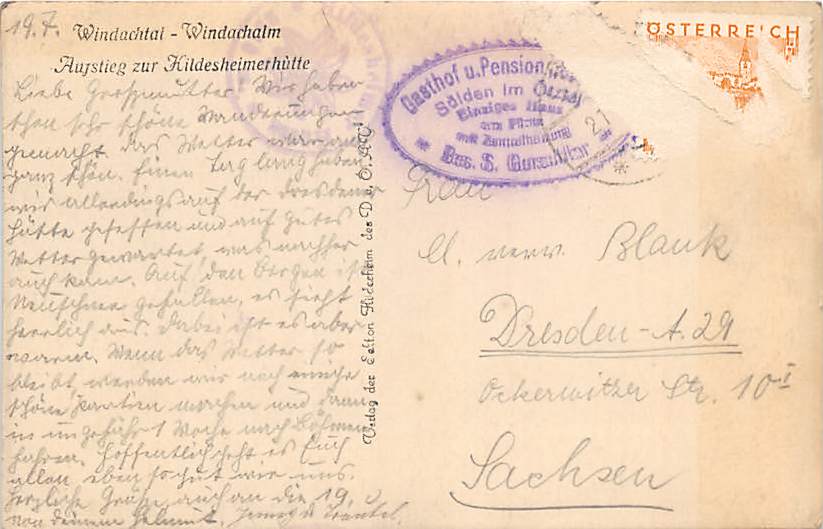 19.7.
Windachtal - Windachalm
Aufstieg zur Hildesheimerhütte
Liebe Großmutter! Wir haben
schon sehr schöne Wanderungen
gemacht, das Wetter war
ganz schön. Einen Tag lang haben
wir allerdings auf der Dresdener
Hütte gesessen und auf gutes
Wetter gewartet, was nachher
auch kam. Auf den Bergen ist
Neuschnee gefallen, es sieht
herrlich aus. Dabei ist es aber
warm. Wenn das Wetter so
bleibt, werden wir noch einige
schöne Partien machen und dann
in ungefähr 1 Woche nach Böhmen
fahren. Hoffentlich geht es Euch
allen eben so gut wie uns.
Herzliche Grüße auch an die 19. u
von deinem Helmut,
Verlag der Sektion Hildesheim des D. u. Ö. A. V.
Gasthof u. Pension
Sölden im Ötztal
Einziges Haus
am Platz
mit Zentralheizung
Bes. S.
27
ÖSTERREICH
Frau
verw. Blank
Dresden-A. 29
Ockerwitzer Str. 10 I
Sachsen